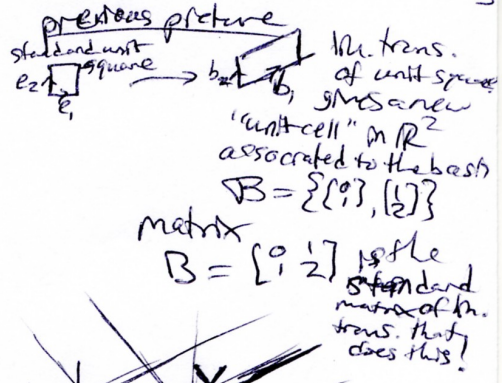 previous picture
standard unit
square
e₂
e₁
b₂
b₁
lin. trans.
of unit square
gives a new
"unit cell" in ℝ²
associated to the basis
B = {[0 1], [1 2]}
matrix
B = [0 1; 1 2] is the
standard
matrix of lin.
trans. that
does this!